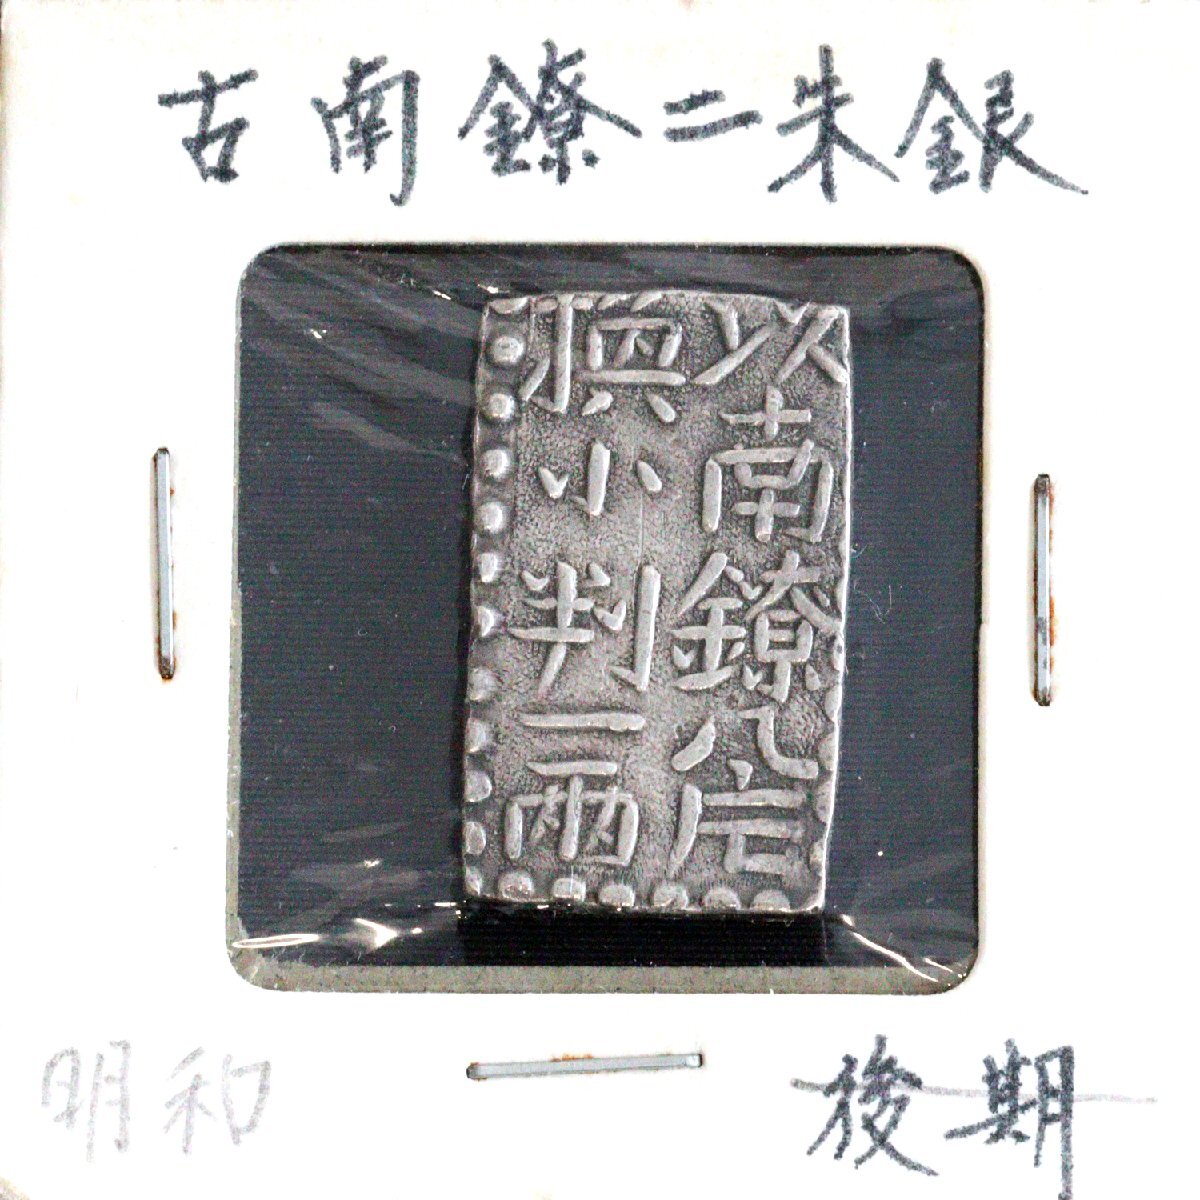 古南鐐二朱銀
以南鐐八片
換小判一兩
明和
後期